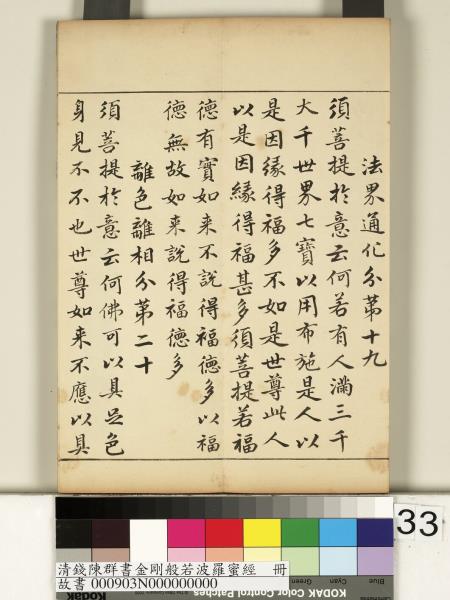 法界通化分第十九
須菩提於意云何若有人滿三千
大千世界七寶以用布施是人以
是因緣得福多不如是世尊此人
以是因緣得福甚多須菩提若福
德有實如來不說得福德多以福
德無故如來說得福德多
離色離相分第二十
須菩提於意云何佛可以具足色
身見不不也世尊如來不應以具
33
Blue
Cyan
Green
清錢陳群書金剛般若波羅蜜經 冊
故書 000903N000000000
Kodak
KODAK Color Control Patches